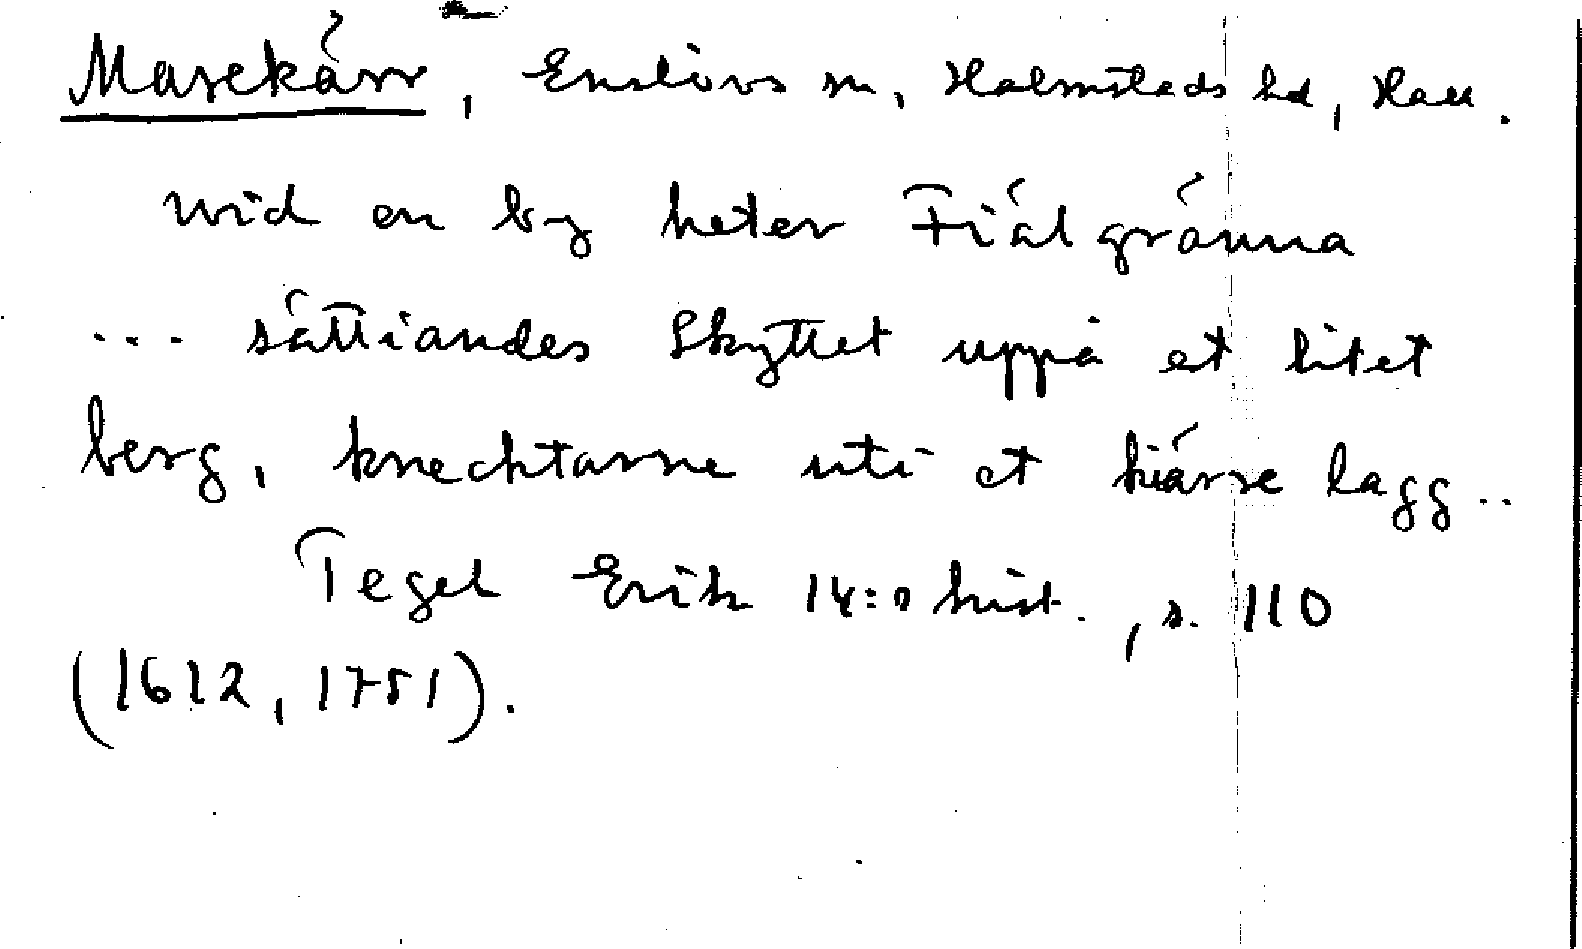 Marekärr, Enslövs sn, Halmstads hd, Hall.
wid en by heter Fiälgränna
... sättiandes Skyttet uppå et litet
berg, knechtarne uti et kiärre lagg..
Tegel Erik 14:s hist., s. 110
(1612, 1751).